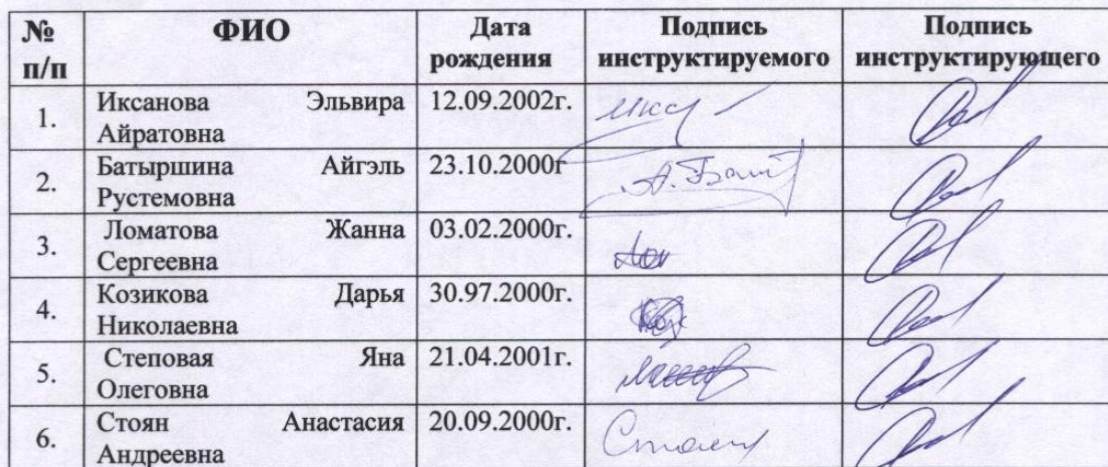 № п/п ФИО Дата рождения Подпись инструктируемого Подпись инструктирующего
1. Иксанова Эльвира Айратовна 12.09.2002г. Икс
2. Батыршина Айгэль Рустемовна 23.10.2000г А. Бат
3. Ломатова Жанна Сергеевна 03.02.2000г.
4. Козикова Дарья Николаевна 30.97.2000г.
5. Степовая Яна Олеговна 21.04.2001г.
6. Стоян Анастасия Андреевна 20.09.2000г.